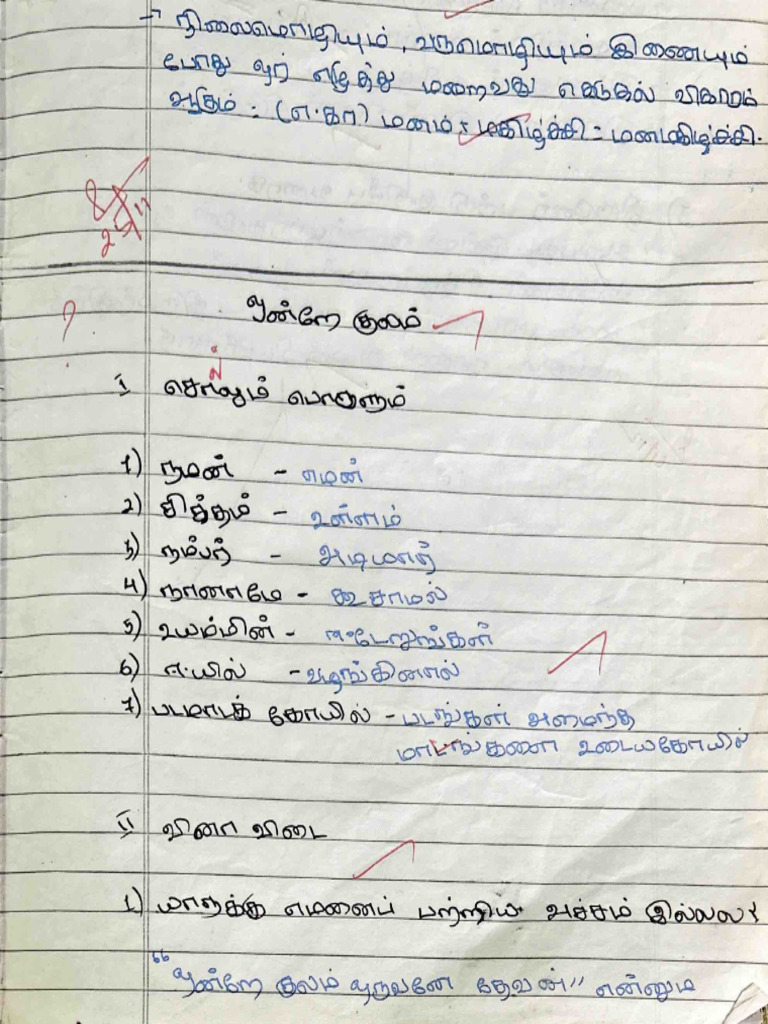 → நிலைமொழியும், வருமொழியும் இணையும்
போது ஓர் எழுத்து மறைவது கெடுதல் விகாரம்
ஆகும் : (எ.கா) மனம் + மகிழ்ச்சி = மனமகிழ்ச்சி.
ஒன்றே குலம்
I சொல்லும் பொருளும்
1) நமன் - எமன்
2) சித்தம் - உள்ளம்
3) நம்பர் - அடியார்
4) நாணாமே - கூசாமல்
5) உய்ம்மின் - ஈடேறுங்கள்
6) ஈயில் - வழங்கினால்
7) படமாடக் கோயில் - படங்கள் அமைந்த
மாடங்களை உடையகோயில்
II வினா விடை
1) யாருக்கு எமனைப் பற்றிய அச்சம் இல்லை?
"ஒன்றே குலம் ஒருவனே தேவன்" என்னும்